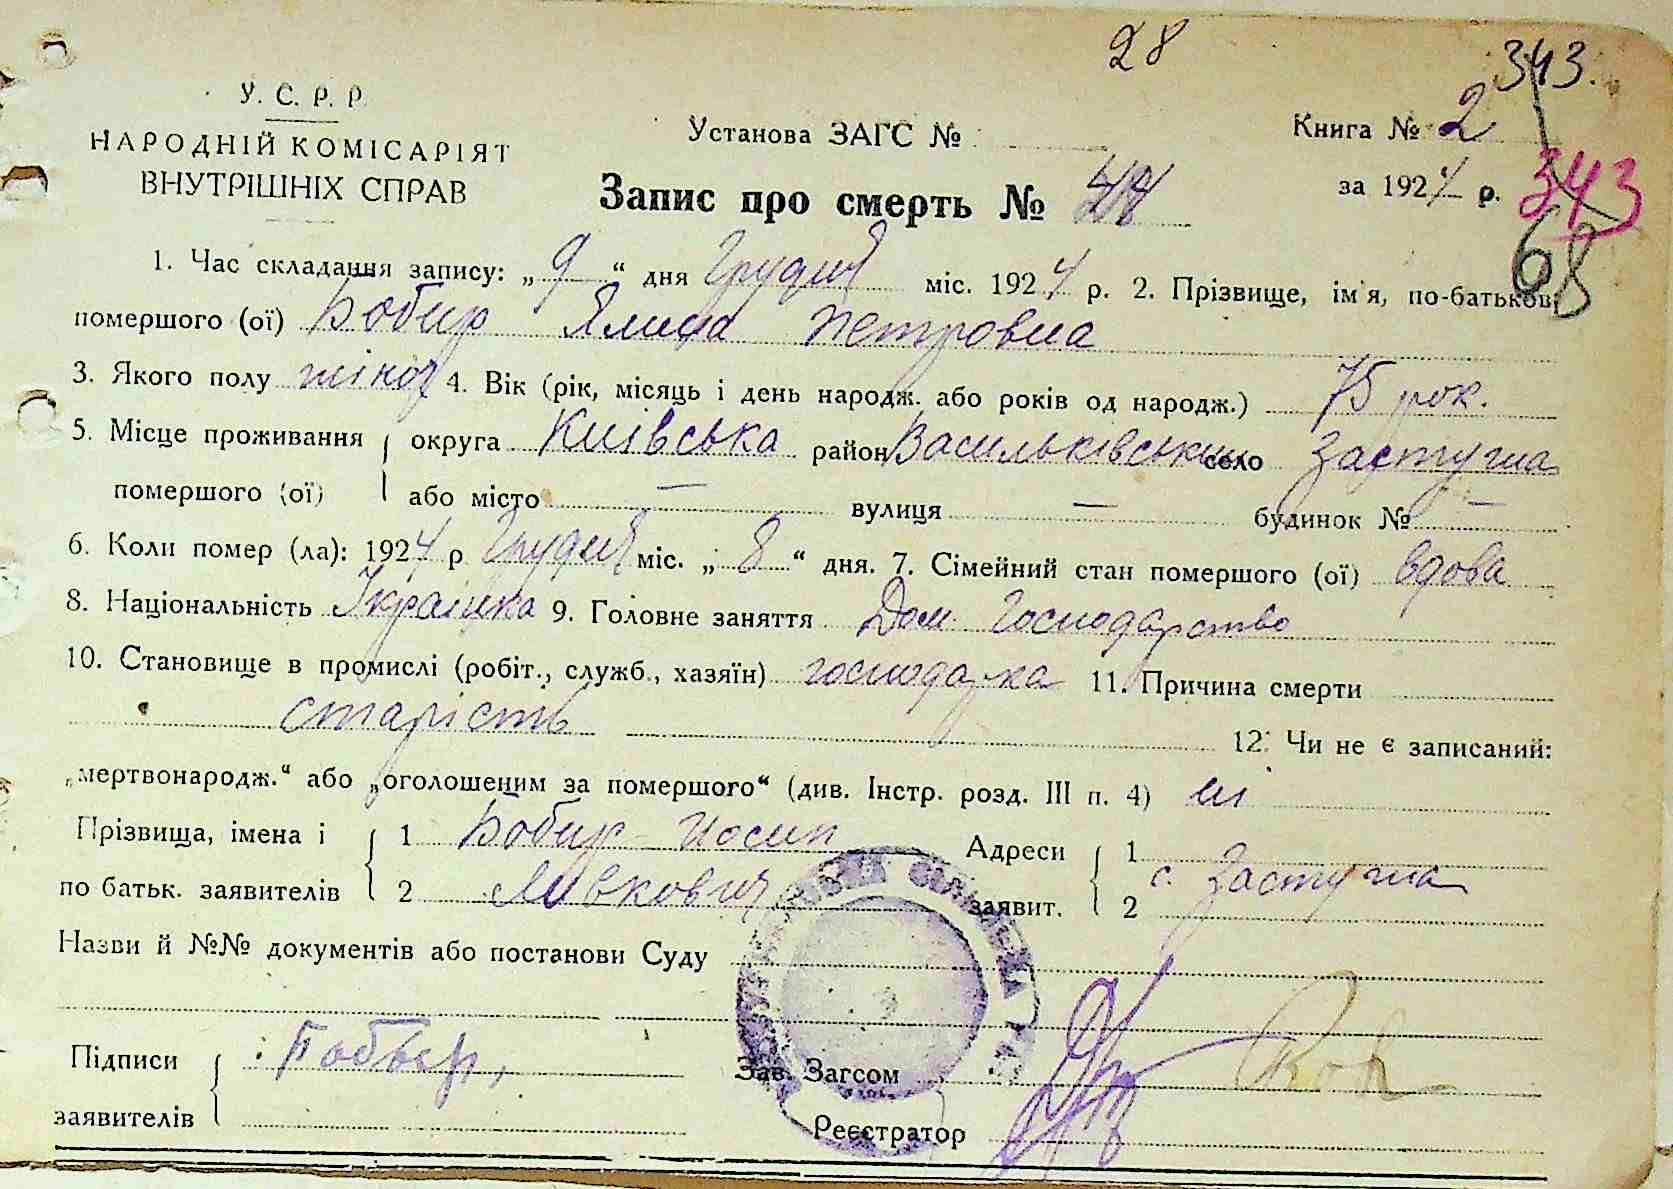 28
343.
У. С. Р. Р.
НАРОДНІЙ КОМІСАРІЯТ
ВНУТРІШНІХ СПРАВ
Установа ЗАГС №
Книга № 2
за 1924 р.
343
68
Запис про смерть №
1. Час складання запису: „ 9 “ дня Грудня міс. 1924 р. 2. Прізвище, ім'я, по-батькові
помершого (ої) Бобир Петровна
3. Якого полу жіноч 4. Вік (рік, місяць і день народж. або років од народж.) 75 рок.
5. Місце проживання округа Київська район Васильківський село Застугна
помершого (ої) або місто — вулиця — будинок № —
6. Коли помер (ла): 1924 р Грудня міс. „ 8 “ дня. 7. Сімейний стан помершого (ої) вдова
8. Національність Українка 9. Головне заняття Дом. Господарство
10. Становище в промислі (робіт., служб., хазяїн) господарка 11. Причина смерти
старість
12. Чи не є записаний:
„мертвонародж.“ або „оголошеним за помершого“ (див. Інстр. розд. III п. 4) ні
Прізвища, імена і 1 Бобир Иосип Адреси 1
по батьк. заявителів 2 заявит. 2 с. Застугна
Назви й №№ документів або постанови Суду
Підписи
заявителів
Зав. Загсом
Реєстратор